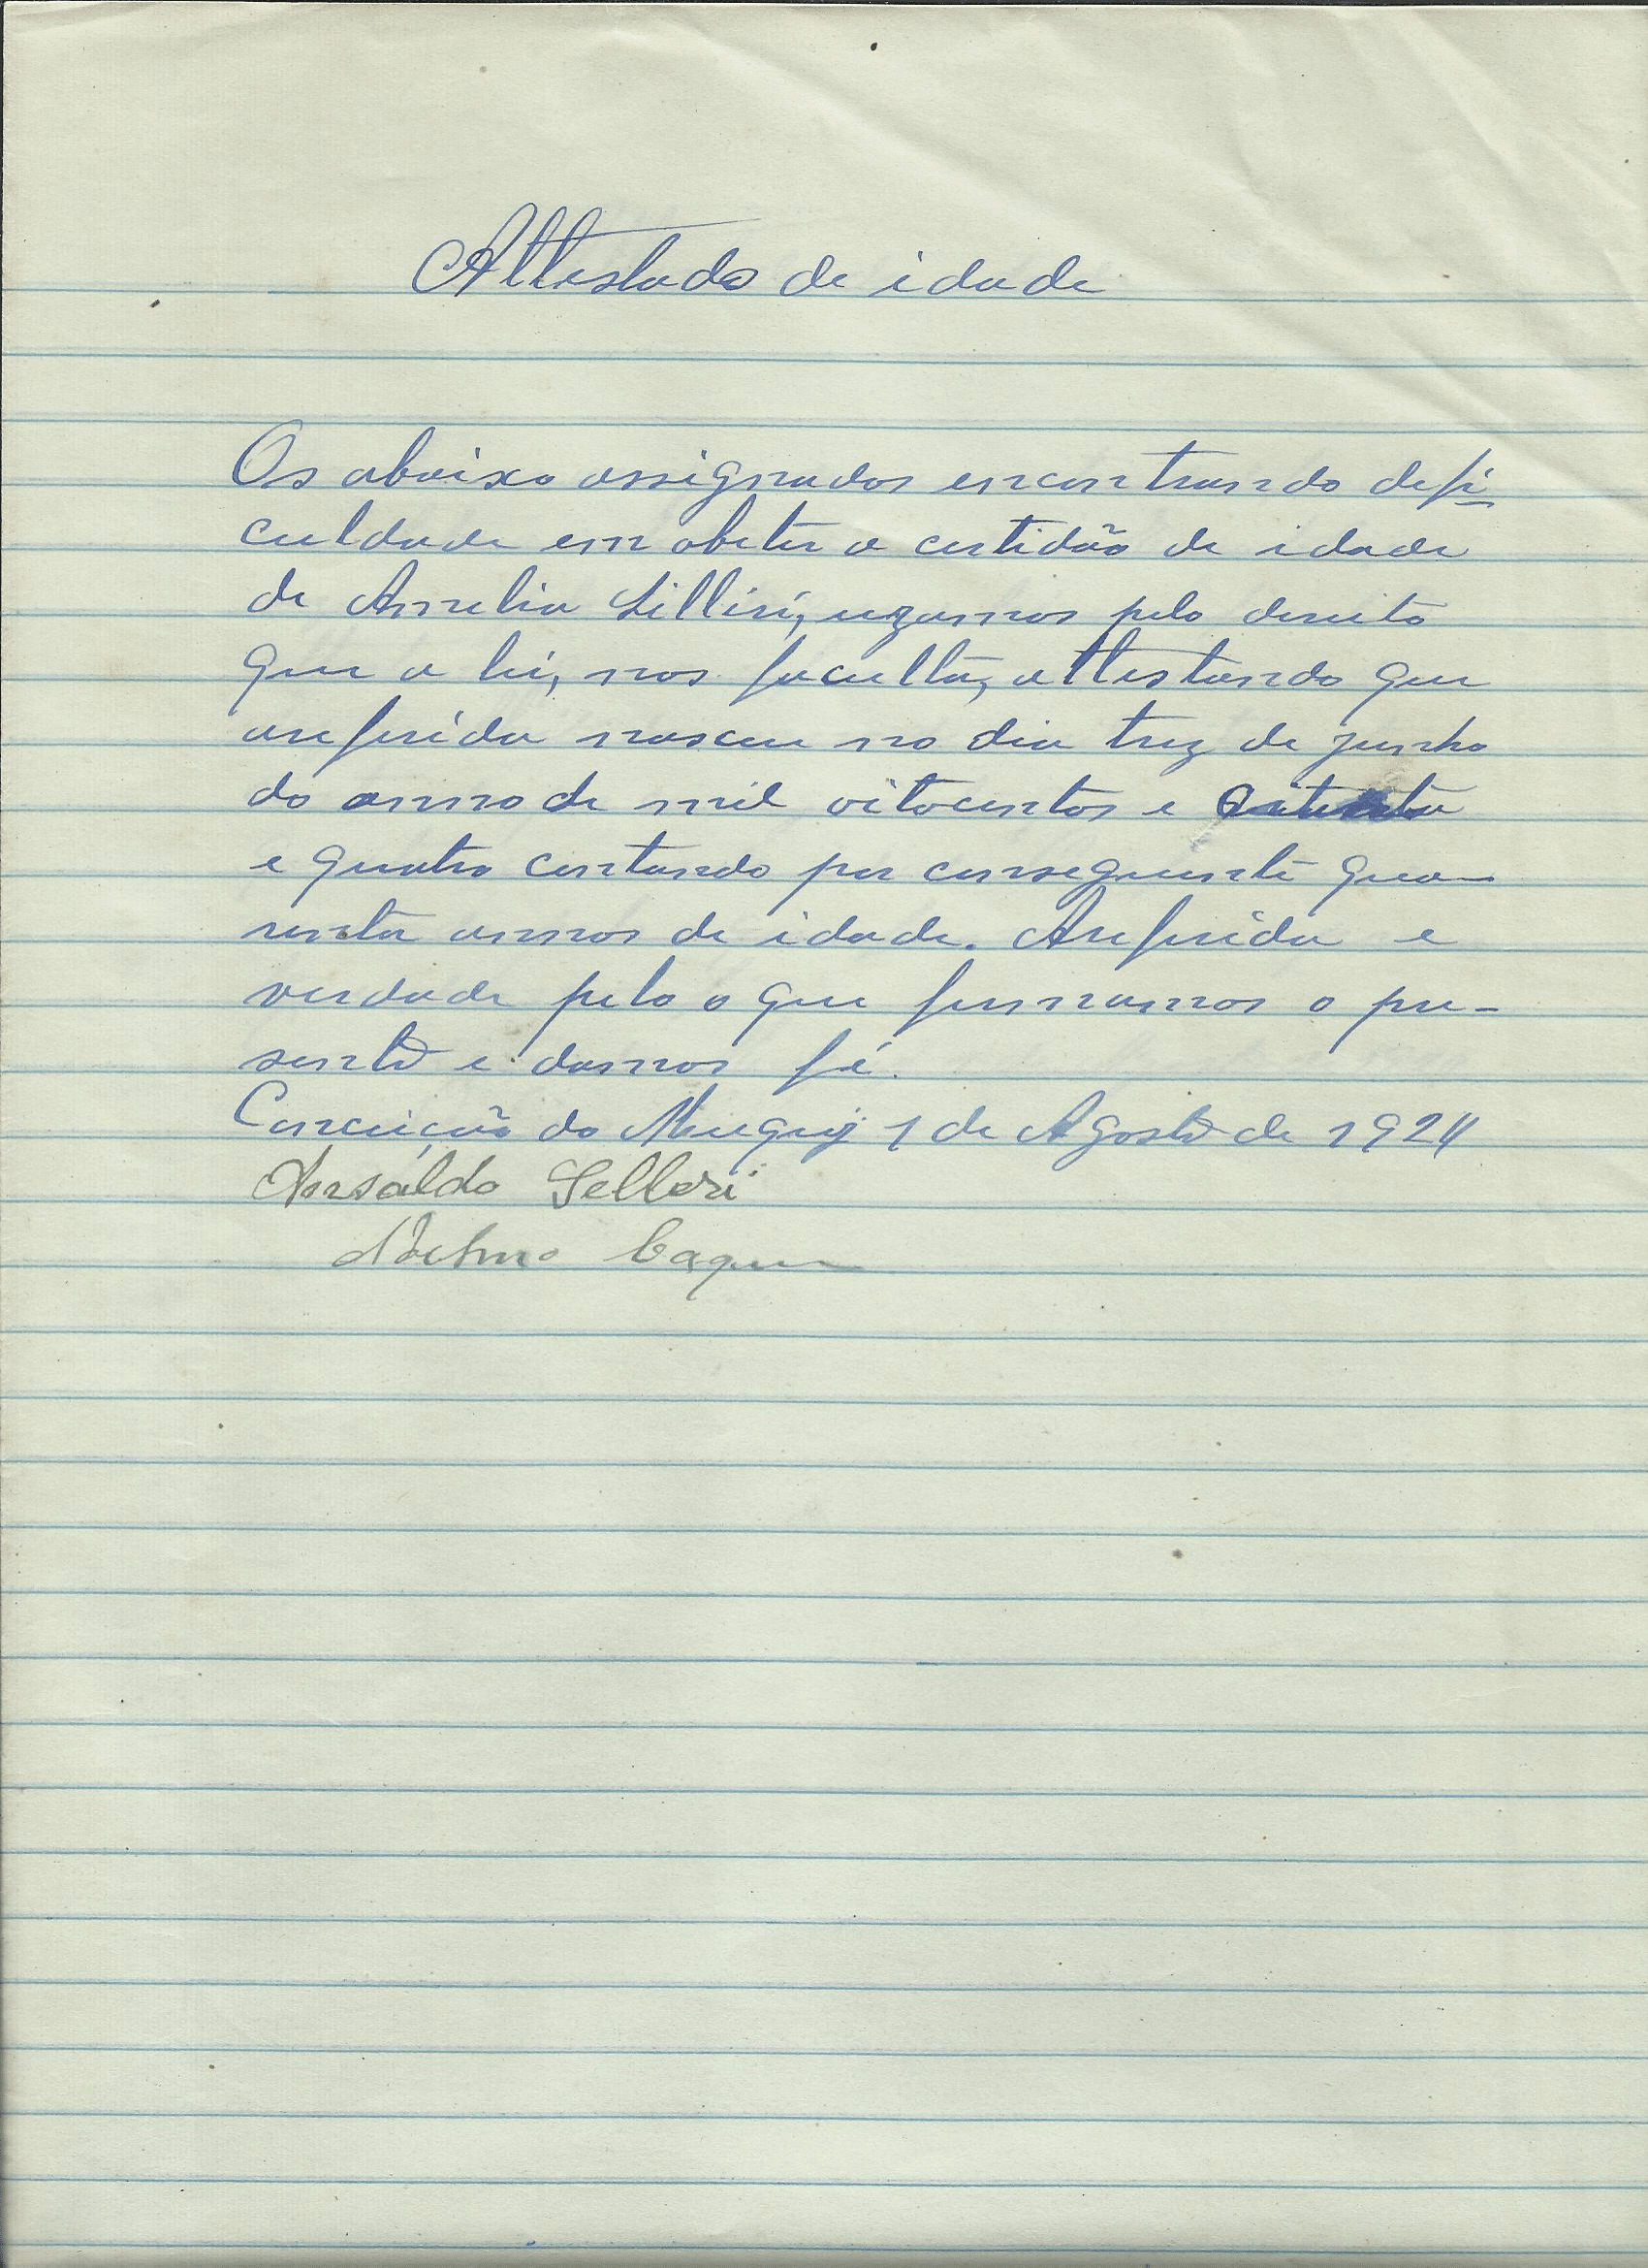 Attestado de idade
Os abaixo assignados encontrando defi-
culdade em obeter a certidão de idade
de Amelia Silleri, uzamos pelo dereito
que a lei, nos faculta, attestando que
areferida nasceu no dia trez de junho
do anno de mil oitocentos e
e quatro contando por conseguinte qua-
renta annos de idade. Areferida e
verdade pelo o que firmamos o pre-
sente e damos fé.
Conceição do Muquy 1 de Agosto de 1924
Ansaldo Selleri